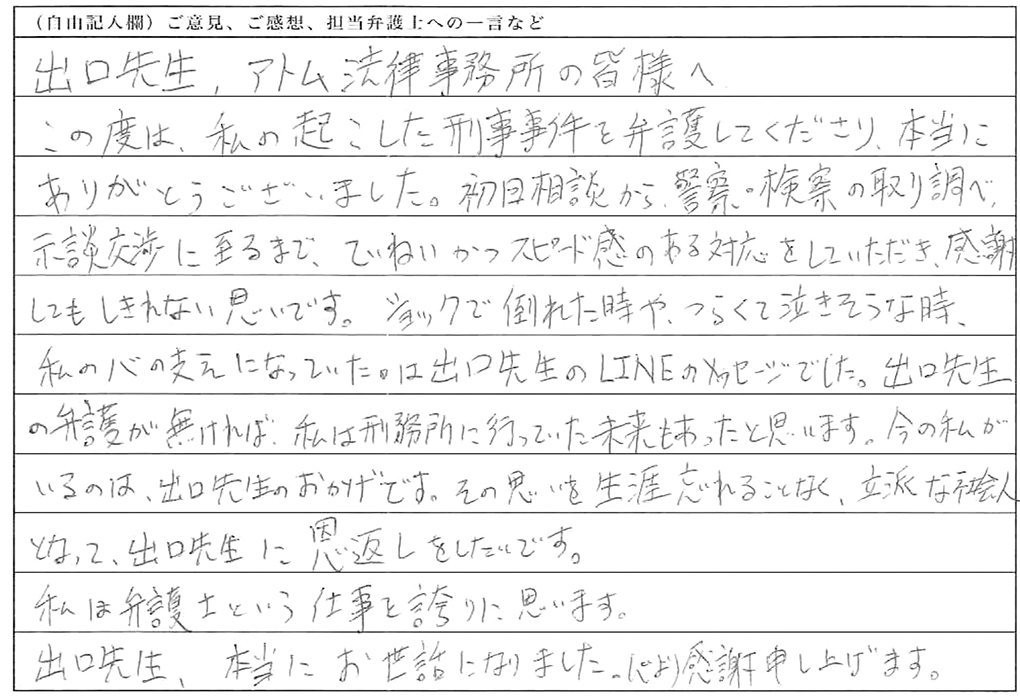 (自由記入欄)ご意見、ご感想、担当弁護士への一言など
出口先生, アトム法律事務所の皆様へ
この度は、私の起こした刑事事件を弁護してくださり、本当に
ありがとうございました。初回相談から、警察・検察の取り調べ、
示談交渉に至るまで、ていねいかつスピード感のある対応をしていただき、感謝
してもしきれない思いです。ショックで倒れた時や、つらくて泣きそうな時、
私の心の支えになっていたのは出口先生のLINEのメッセージでした。出口先生
の弁護が無ければ、私は刑務所に行っていた未来もあったと思います。今の私が
いるのは、出口先生のおかげです。その思いを生涯忘れることなく、立派な社会人
となって、出口先生に恩返しをしたいです。
私は弁護士という仕事を誇りに思います。
出口先生、本当にお世話になりました。心より感謝申し上げます。